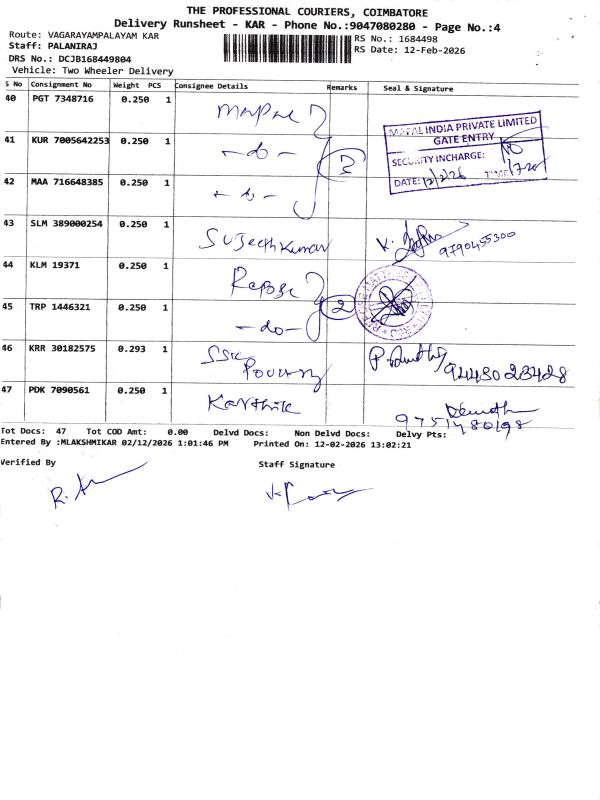 THE PROFESSIONAL COURIERS, COIMBATORE
Delivery Runsheet - KAR - Phone No.:9047080280 - Page No.:4
Route: VAGARAYAMPALAYAM KAR
RS No.: 1684498
Staff: PALANIRAJ
RS Date: 12-Feb-2026
DRS No.: DCJB168449804
Vehicle: Two Wheeler Delivery
S No Consignment No Weight PCS Consignee Details Remarks Seal & Signature
40 PGT 7348716 0.250 1
41 KUR 7005642253 0.250 1 -do- 3
INDIA PRIVATE LIMITED
GATE ENTRY
SECURITY INCHARGE:
DATE: 12/2/26 TIME
42 MAA 716648385 0.250 1 -do-
43 SLM 389000254 0.250 1 Sujeethkumar 9790455300
44 KLM 19371 0.250 1
45 TRP 1446321 0.250 1 -do- 2
46 KRR 30182575 0.293 1 9448023428
47 PDK 7090561 0.250 1 Karthik 9751480198
Tot Docs: 47 Tot COD Amt: 0.00 Delvd Docs: Non Delvd Docs: Delvy Pts:
Entered By :MLAKSHMIKAR 02/12/2026 1:01:46 PM Printed On: 12-02-2026 13:02:21
Verified By Staff Signature